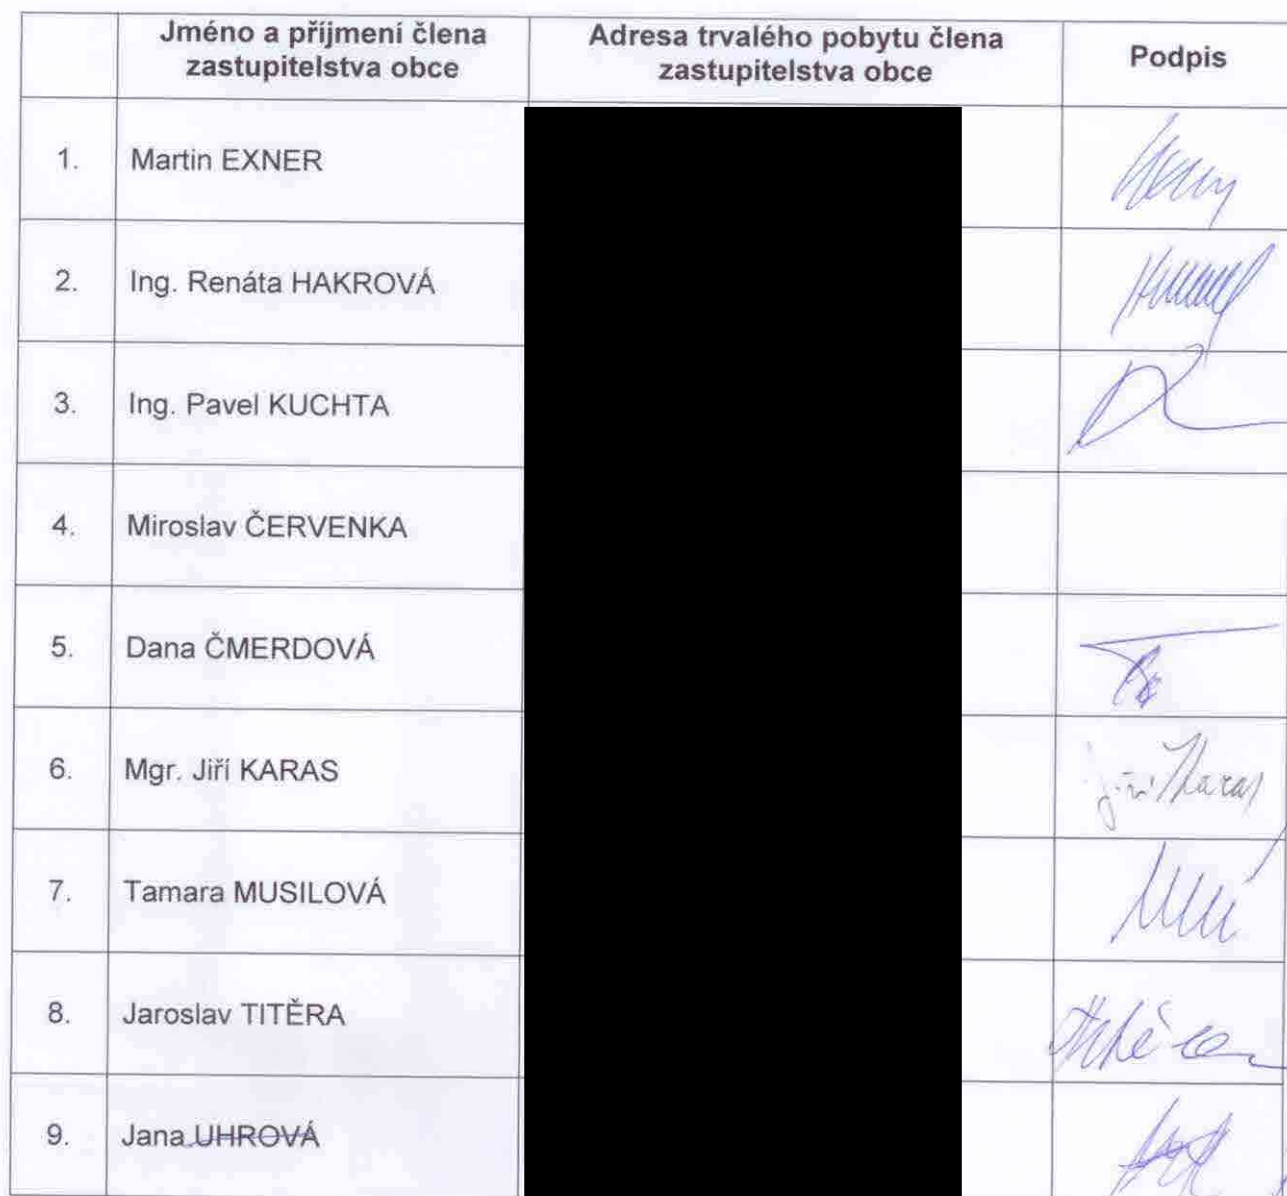 Jméno a příjmení člena
zastupitelstva obce
Adresa trvalého pobytu člena
zastupitelstva obce
Podpis
1. Martin EXNER
2. Ing. Renáta HAKROVÁ
3. Ing. Pavel KUCHTA
4. Miroslav ČERVENKA
5. Dana ČMERDOVÁ
6. Mgr. Jiří KARAS Jiří Karas
7. Tamara MUSILOVÁ
8. Jaroslav TITĚRA
9. Jana UHROVÁ